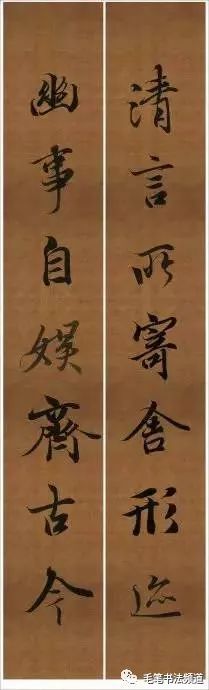 清言所寄舍形迹
幽事自娱齊古今
毛笔书法频道